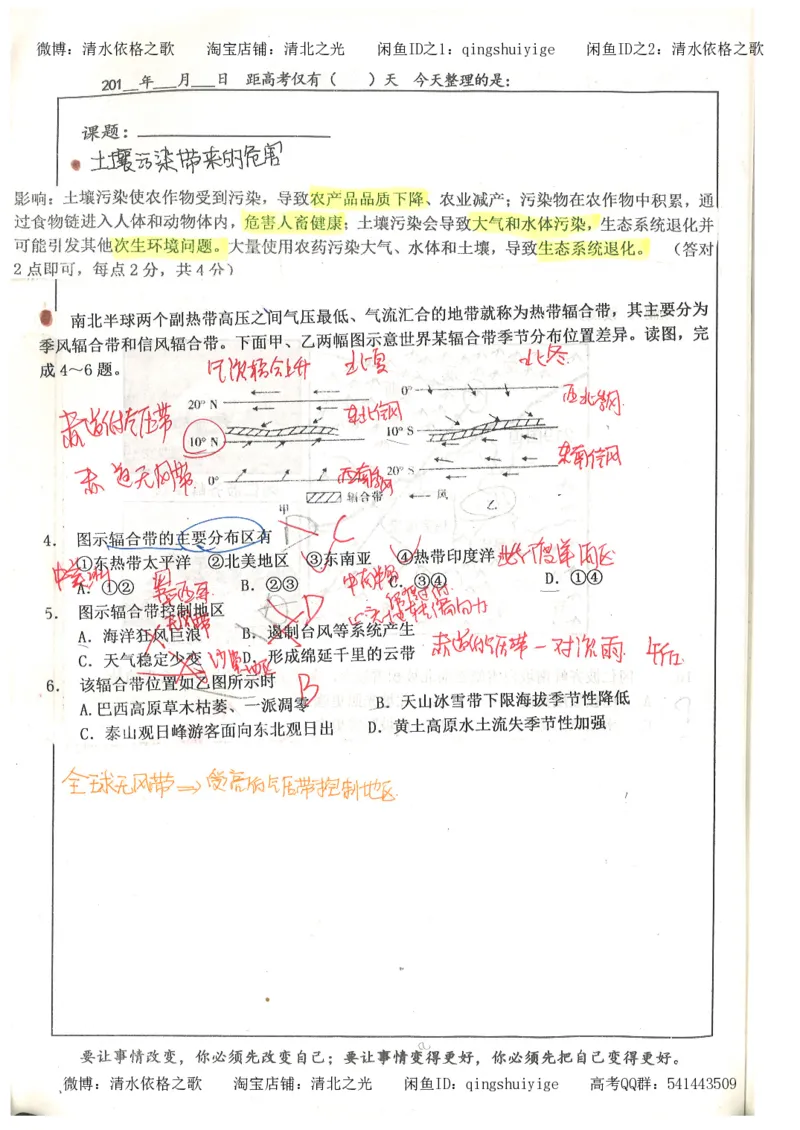 微博：清水依格之歌 淘宝店铺：清北之光 闲鱼ID之1：qingshuiyige 闲鱼ID之2：清水依格之歌
201__年___月___日 距高考仅有（ ）天 今天整理的是：
课题：
土壤污染带来的危害
影响：土壤污染使农作物受到污染，导致农产品品质下降、农业减产；污染物在农作物中积累，通
过食物链进入人体和动物体内，危害人畜健康；土壤污染会导致大气和水体污染，生态系统退化并
可能引发其他次生环境问题。大量使用农药污染大气、水体和土壤，导致生态系统退化。 （答对
2点即可，每点2分，共4分）
南北半球两个副热带高压之间气压最低、气流汇合的地带就称为热带辐合带，其主要分为
季风辐合带和信风辐合带。下面甲、乙两幅图示意世界某辐合带季节分布位置差异。读图，完
成4～6题。
气流辐合上升 北夏 北冬
20° N 0°
西北季风
赤道低气压带 东北信风
10° N 10° S
赤道无风带 0° 西南季风 20° S 东南信风
辐合带 风
甲 乙
4. 图示辐合带的主要分布区有 C
①东热带太平洋 ②北美地区 ③东南亚 ④热带印度洋
A. ①② B. ②③ C. ③④ D. ①④
5. 图示辐合带控制地区 D
A. 海洋狂风巨浪 B. 遏制台风等系统产生
无风带
C. 天气稳定少变 D. 形成绵延千里的云带
赤道低气压带—对流雨
6. 该辐合带位置如乙图所示时 B
A.巴西高原草木枯萎、一派凋零 B. 天山冰雪带下限海拔季节性降低
C. 泰山观日峰游客面向东北观日出 D. 黄土高原水土流失季节性加强
全球无风带⇒受高低气压带控制地区.
要让事情改变，你必须先改变自己；要让事情变得更好，你必须先把自己变得更好。
微博：清水依格之歌 淘宝店铺：清北之光 闲鱼ID：qingshuiyige 高考QQ群：541443509